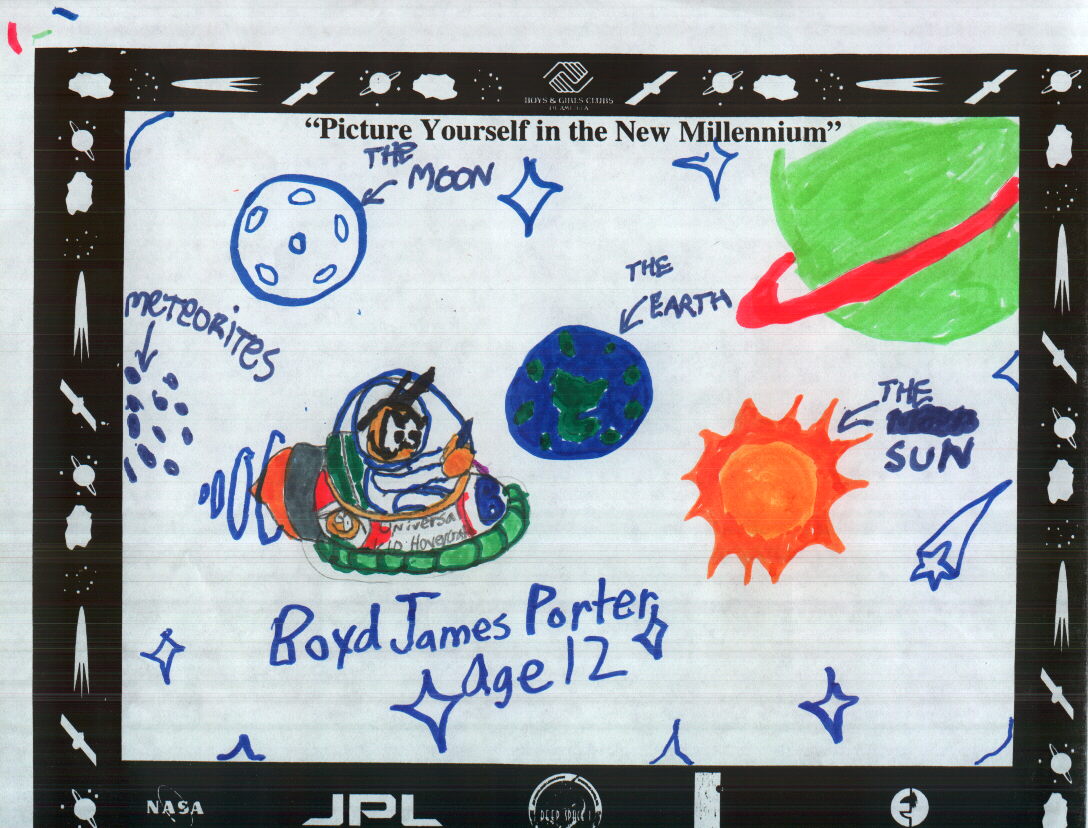 BOYS & GIRLS CLUBS
OF AMERICA
“Picture Yourself in the New Millennium”
THE
MOON
METEORITES
THE
EARTH
THE
SUN
Universal
Hovercraft
Boyd James Porter
age 12
NASA
JPL
DEEP SPACE 1